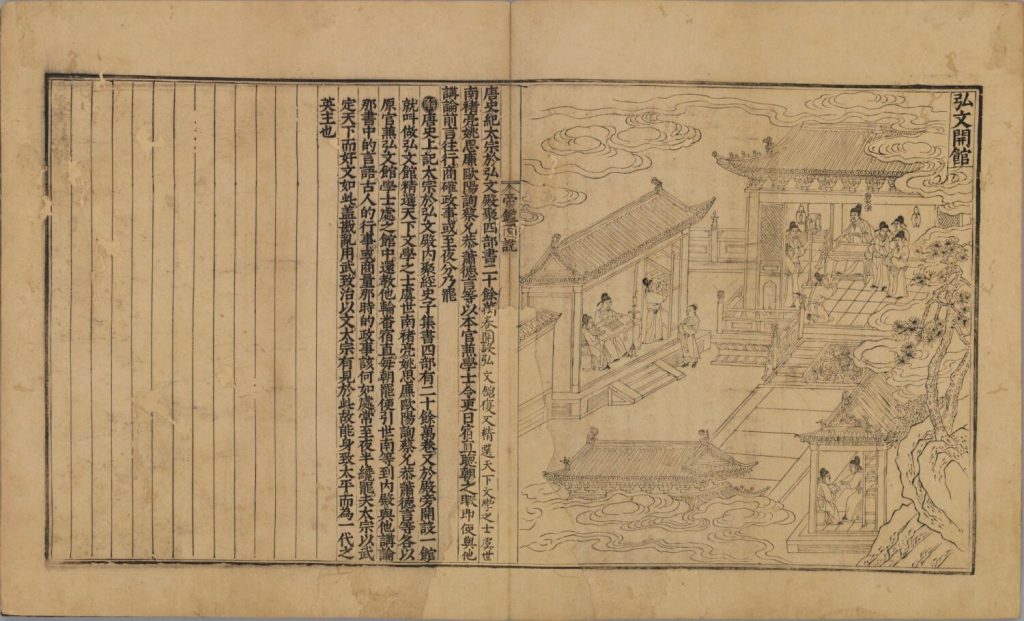 弘文開館
帝鑑圖說
唐史紀太宗於弘文殿聚四部書二十餘萬卷開設弘文館復又精選天下文學之士虞世
南褚亮姚思廉歐陽詢蔡允恭蕭德言等以本官兼學士令更日宿直聽朝之暇即便與他
講論前言往行商確政事或至夜分乃罷
解唐史上記太宗於弘文殿內聚經史子集書四部有二十餘萬卷又於殿旁開設一館
就叫做弘文館精選天下文學之士虞世南褚亮姚思廉歐陽詢蔡允恭蕭德言等各以
原官兼弘文館學士處之館中還教他輪番宿直每朝罷便引世南等到內殿與他講論
那書中的言語古人的行事或商量那時的政事該何如處常至夜半纔罷夫太宗以武
定天下而好文如此蓋戡亂用武致治以文太宗有見於此故能身致太平而為一代之
英主也